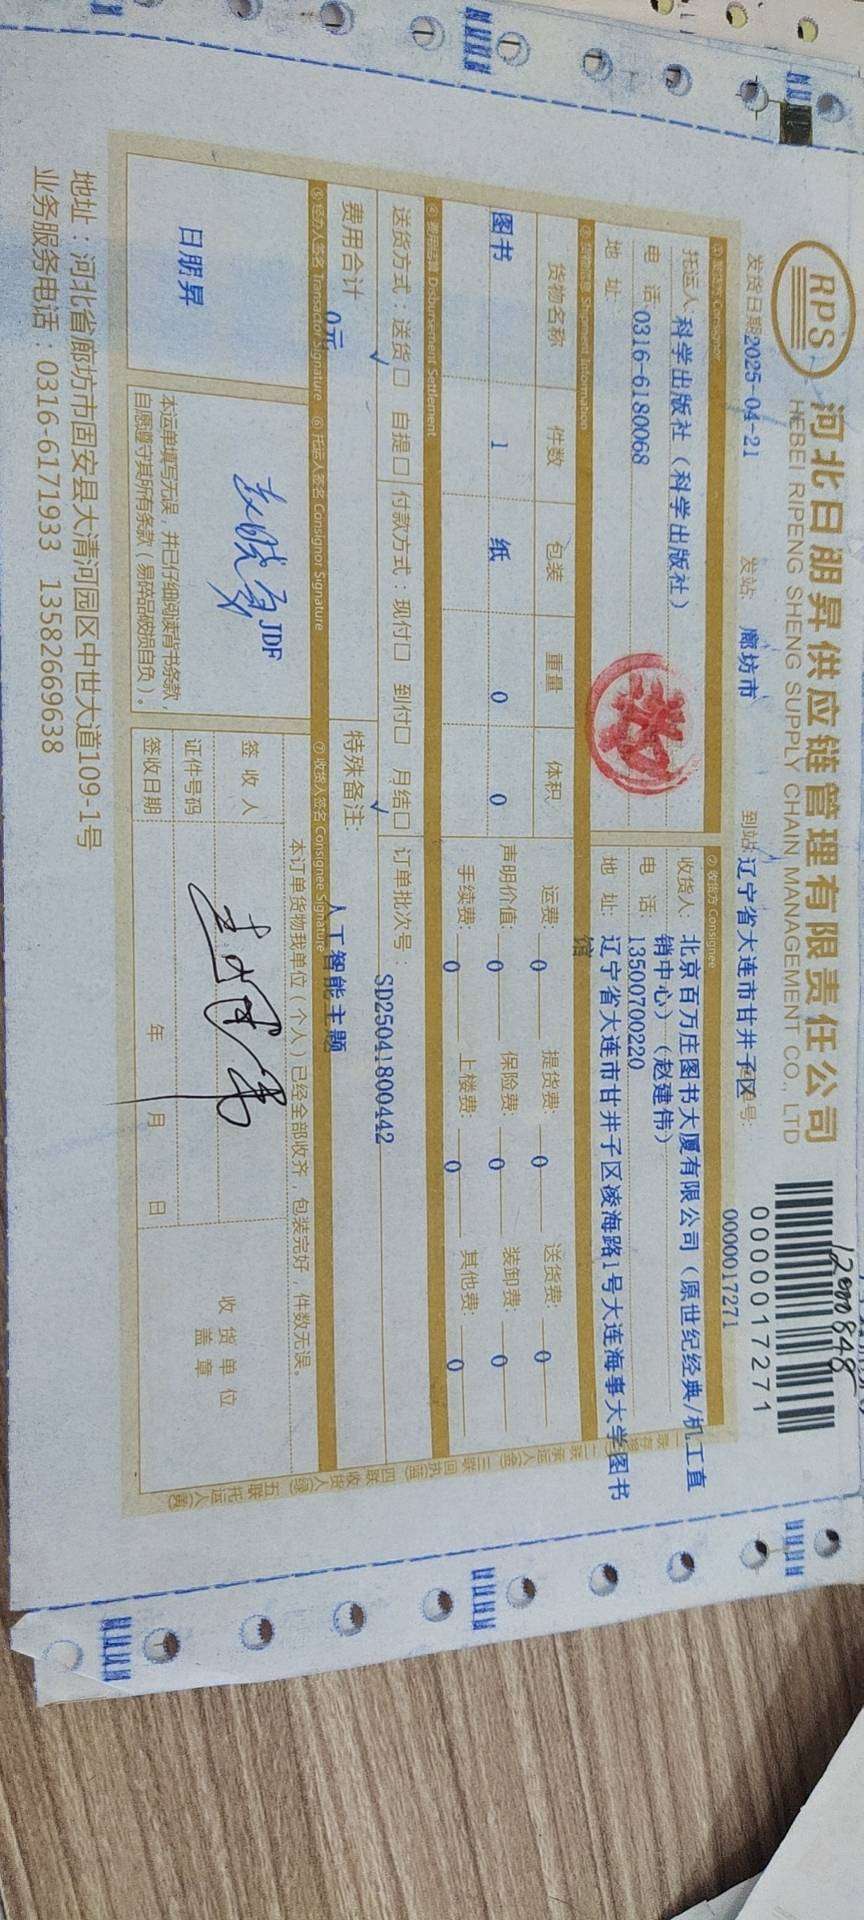 RPS
河北日朋昇供应链管理有限责任公司
HEBEI RIPENG SHENG SUPPLY CHAIN MANAGEMENT CO., LTD
0000017271
发货日期 2025-04-21 发站: 廊坊市 到站: 辽宁省大连市甘井子区 号: 0000017271
①发货方 Consignor
托运人: 科学出版社(科学出版社)
电 话: 0316-6180068
地 址:
②收货方 Consignee
收货人: 北京百万庄图书大厦有限公司(原世纪经典/机工直
销中心)(赵建伟)
电 话: 13500700220
地 址: 辽宁省大连市甘井子区凌海路1号大连海事大学图书
馆
③货物信息 Shipment Information
货物名称 件数 包装 重量 体积
图书 1 纸 0 0
运费: 0 提货费: 0 送货费: 0
声明价值: 0 保险费: 0 装卸费: 0
手续费: 0 上楼费: 0 其他费: 0
④费用结算 Disbursement Settlement
送货方式: 送货□ 自提□ 付款方式: 现付□ 到付□ 月结□ 订单批次号: SD25041800442
费用合计 0元 特殊备注: 人工智能主题
⑤经办人签名 Transactor Signature ⑥托运人签名 Consignor Signature ⑦收货人签名 Consignee Signature
日朋昇
JDF
本运单填写无误，并已仔细阅读背书条款，
自愿遵守其所有条款(易碎品破损自负)。
本订单货物我单位(个人)已经全部收齐，包装完好，件数无误。
签 收 人
证件号码
签收日期 年 月 日
收 货 单 位
盖 章
地址：河北省廊坊市固安县大清河园区中世大道109-1号
业务服务电话：0316-6171933 13582669638